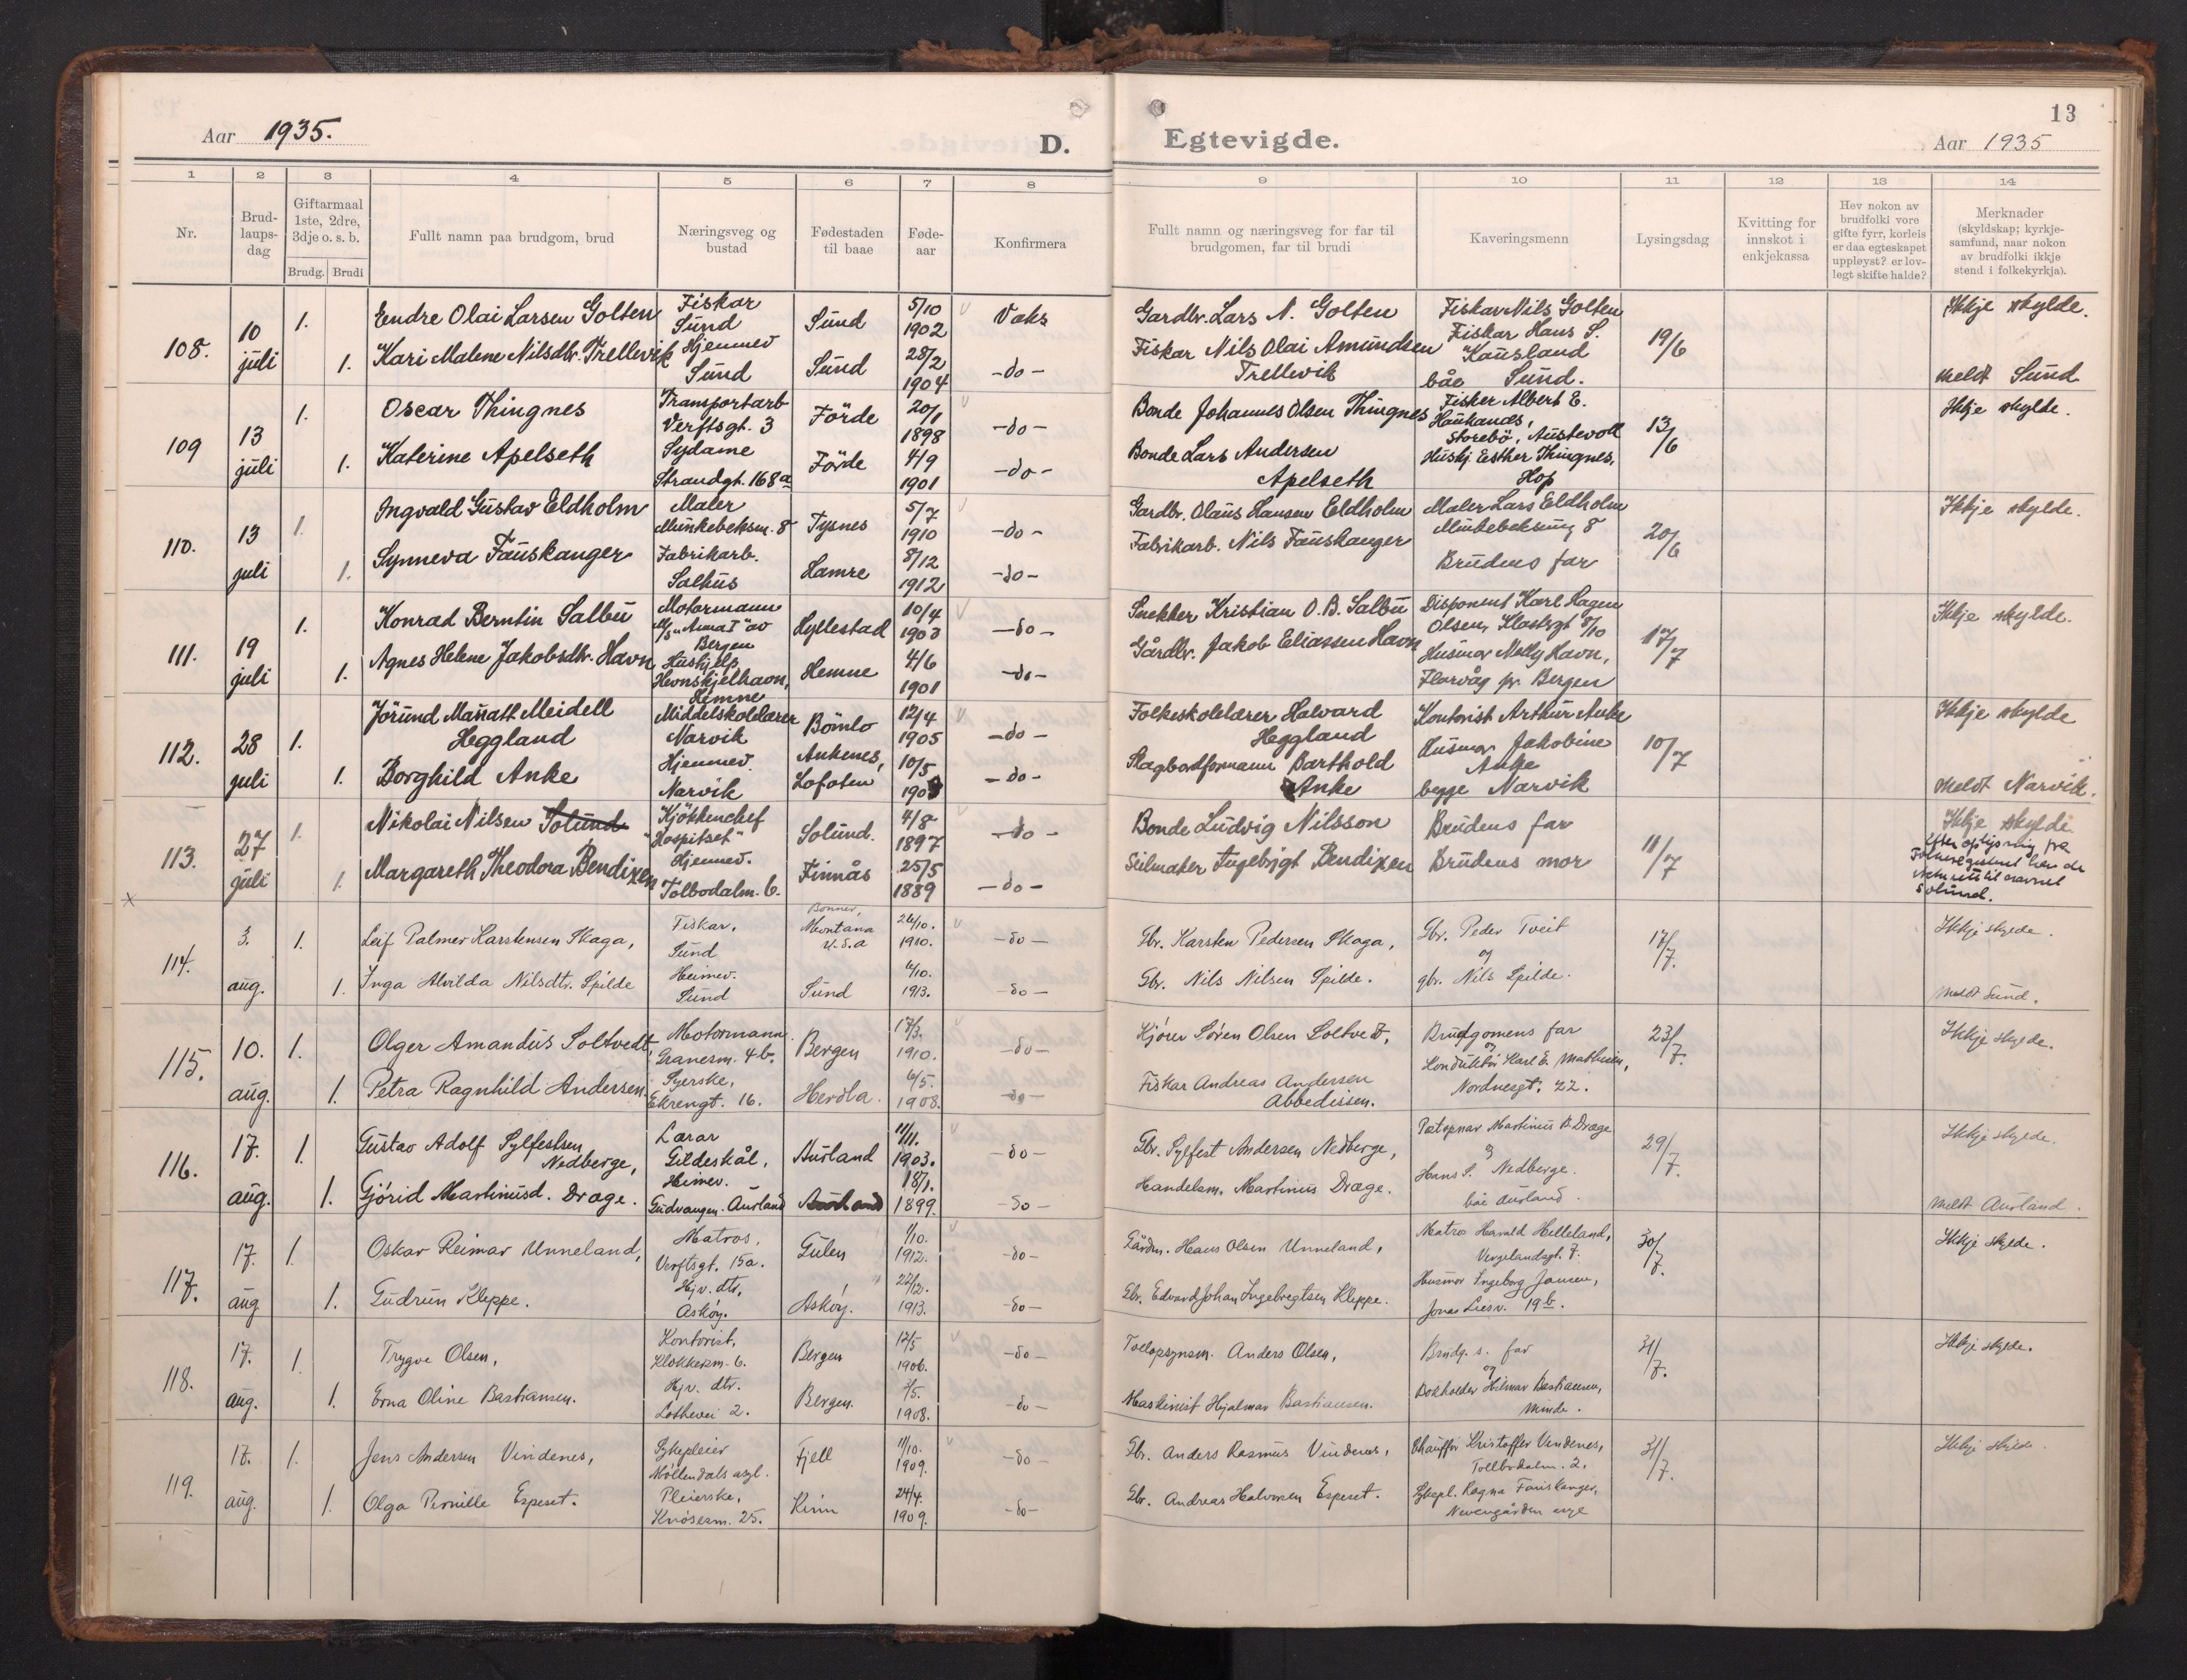 Aar 1935.
D. Egtevigde.
13
Aar 1935
1 2 3 4 5 6 7 8 9 10 11 12 13 14
Nr.
Brud-
laups-
dag
Giftarmaal
1ste, 2dre,
3dje o. s. b.
Brudg. Brudi
Fullt namn paa brudgom, brud
Næringsveg og
bustad
Fødestaden
til baae
Føde-
aar
Konfirmera
Fullt namn og næringsveg for far til
brudgomen, far til brudi
Kaveringsmenn
Lysingsdag
Kvitting for
innskot i
enkjekassa
Hev nokon av
brudfolki vore
gifte fyrr, korleis
er daa egteskapet
uppløyst? er lov-
legt skifte halde?
Merknader
(skyldskap; kyrkje-
samfund, naar nokon
av brudfolki ikkje
stend i folkekyrkja).
108.
10
juli
1.
Endre Olai Larsen Golten
Fiskar
Sund
Sund
5/10
1902
Vaks
Gardbr. Lars N. Golten
Fiskar Nils Golten
19/6
Ikkje skylde.
1.
Kari Malene Nilsdtr. Trellevik
Hjemmev
Sund
Sund
28/2
1904
-do-
Fiskar Nils Olai Amundsen
Trellevik
Fiskar Hans S.
Kausland
båe Sund.
Meldt Sund
109
13
juli
1.
Oscar Thingnes
Transportarb
Verftsgt. 3
Förde
20/1
1898
-do-
Bonde Johannes Olsen Thingnes
Fisker Albert E.
Haukanes,
Storebö, Austevoll
13/6
Ikkje skylde.
1.
Katerine Apelseth
Sydame
Strandgt. 168a
Förde
4/9
1901
-do-
Bonde Lars Andersen
Apelseth
Huskj Esther Thingnes,
Hop
110.
13
juli
1.
Ingvald Gustav Eldholm
Maler
Munkebeksm. 8
Tysnes
5/7
1910
-do-
Gardbr. Olaus Hansen Eldholm
Maler Lars Eldholm
Munkebeksmug 8
20/6
Ikkje skylde.
1.
Synneva Fauskanger
Fabrikarb.
Salhus
Hamre
8/12
1912
-do-
Fabrikarb. Nils Fauskanger
Brudens far
111.
19
juli
1.
Konrad Berntin Salbu
Motormann
M/S "Anna I" av
Bergen
Hyllestad
10/4
1903
-do-
Snekker Kristian O. B. Salbu
Disponent Karl Hagen
Olsen, Klostergt 8/10
17/7
Ikkje skylde.
1.
Agnes Helene Jakobsdtr. Havn
Hushjelp
Hevnskjelhavn,
Hemne
Hemne
4/6
1901
-do-
Gårdbr. Jakob Eliassen Havn
Husmor Nelly Havn,
Florvåg pr. Bergen
112.
28
juli
1.
Jörund Manatt Meidell
Heggland
Middelskolelærer
Narvik
Bömlo
12/4
1905
-do-
Folkeskolelærer Halvard
Heggland
Kontorist Arthur Anke
10/7
Ikkje skylde
1.
Borghild Anke
Hjemmev.
Narvik
Ankenes,
Lofoten
10/5
-do-
Slagbordformann Barthold
Anke
Husmor Jakobine
Anke
begge Narvik
Meldt Narvik.
113.
27
juli
1.
Nikolai Nilsen Solund
Kjökkenchef
"Hospitset"
Solund.
4/8
1897
-do-
Bonde Ludvig Nilsson
Brudens far
11/7
Ikkje skylde
Efter oplysning fra
Folkeregisteret har de
ikke rett til navnet
Solund.
1.
Margareth Theodora Bendixen
Hjemmev.
Tolbodalm. 6.
Finnås
25/5
1889
-do-
Seilmaker Ingebrigt Bendixen
Brudens mor
X
114.
3.
aug.
1.
Leif Palmer Karstensen Skaga,
Fiskar,
Sund
Bonner,
Montana
U.S.a
26/10.
1910.
-do-
Gbr. Karsten Pedersen Skaga,
Gbr. Peder Tveit
og
17/7.
Ikkje skylde.
1.
Inga Alvilda Nilsdtr. Spilde
Heimev.
Sund
Sund
6/10.
1913.
-do-
Gbr. Nils Nilsen Spilde.
gbr. Nils Spilde.
Meldt Sund.
115.
10.
aug.
1.
Olger Amandus Soltvedt,
Motormann
Granesm. 4b.
Bergen
17/3.
1910.
-do-
Kjörer Sören Olsen Soltvedt,
Brudgomens far
og
23/7.
Ikkje skylde.
1.
Petra Ragnhild Andersen
Syerske,
Ekrengt. 16.
Herdla.
6/5.
1908.
-do-
Fiskar Andreas Andersen
Abbedissen.
Konduktör Karl E. Mathisen,
Nordnesgt. 22.
116.
17.
aug.
1.
Gustav Adolf Sylfestsen
Nedberge,
Lærar
Gildeskål,
Aurland
11/11.
1903.
-do-
Gbr. Sylfest Andersen Nedberge,
Postopnar Martinus O. Dræge
og
29/7.
Ikkje skylde.
1.
Gjörid Martinusd. Dræge.
Heimev.
Gudvangen. Aurland
Aurland
18/1.
1899.
-do-
Handelsm. Martinus Dræge.
Hans S. Nedberge.
båe Aurland.
Meldt Aurland.
117.
17.
aug
1.
Oskar Reimar Unneland,
Matros,
Verftsgt. 15a.
Gulen
1/10.
1912.
-do-
Gårdm. Hans Olsen Unneland,
Matros Harald Helleland,
Vergelandsgt. 7.
30/7.
Ikkje skylde.
1.
Gudrun Kleppe.
Hjv. dtr,
Asköy.
Asköy.
22/12.
1913.
-do-
Gbr. Edvard Johan Ingebregtsen Kleppe.
Husmor Ingeborg Jansen,
Jonas Liesv. 19b.
118.
17.
aug.
1.
Trygve Olsen,
Kontorist,
Klokkersm. 6.
Bergen
12/5
1906.
-do-
Tollopsynsm. Anders Olsen,
Brudg. s. far
og
31/7.
Ikkje skylde.
1.
Erna Oline Bastiansen.
Hjv. dtr.
Lothevei 2.
Bergen.
2/5.
1908.
-do-
Maskinist Hjalmar Bastiansen.
Bokholder Hilmar Bastiansen,
Minde.
119.
17.
aug.
1.
Jens Andersen Vindenes,
Sykepleier
Möllendals asyl.
Fjell
11/10.
1909.
-do-
Gbr. Anders Rasmus Vindenes,
Chauffør Kristoffer Vindenes,
Tollbodalm. 2.
31/7.
Ikkje skylde.
1.
Olga Pernille Espeset.
Pleierske,
Knösesm. 25.
Kinn
24/4.
1909.
-do-
Gbr. Andreas Halvorsen Espeset.
Sykepl. Ragna Fauskanger,
Nevengården asyl